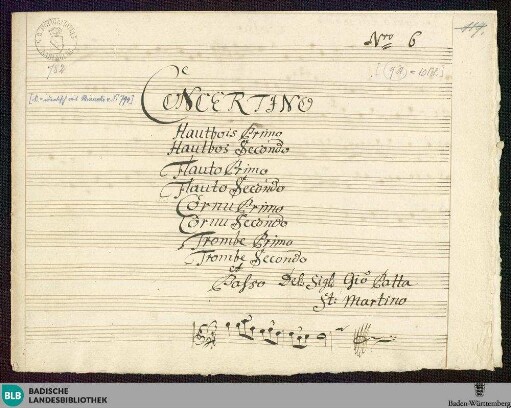 Nro 6
782
CONCERTINO
Hautbois Primo
Hautbos Secondo
Flauto Primo
Flauto Secondo
Cornu Primo
Cornu Secondo
Trombe Primo
Trombe Secondo
et
Basso Del Sigl Gio Batta
St Martino
BLB BADISCHE
LANDESBIBLIOTHEK
Baden-Württemberg